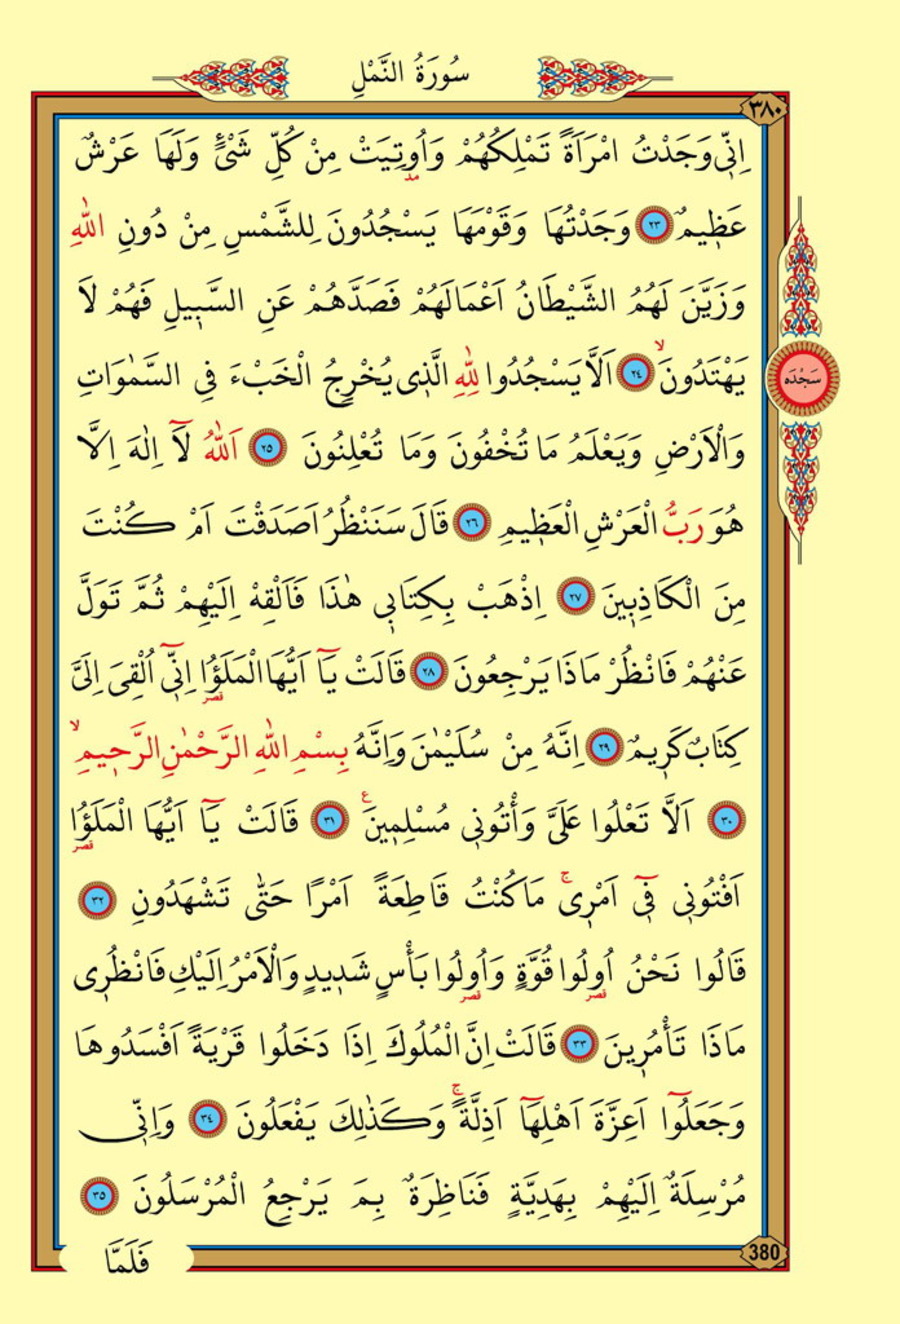 سُورَةُ النَّمْلِ
٣٨٠
اِنّ۪ي وَجَدْتُ امْرَاَةً تَمْلِكُهُمْ وَاُو۫تِيَتْ مِنْ كُلِّ شَيْءٍ وَلَهَا عَرْشٌ
مد
عَظ۪يمٌ ﴿٢٣﴾ وَجَدْتُهَا وَقَوْمَهَا يَسْجُدُونَ لِلشَّمْسِ مِنْ دُونِ اللّٰهِ
وَزَيَّنَ لَهُمُ الشَّيْطَانُ اَعْمَالَهُمْ فَصَدَّهُمْ عَنِ السَّب۪يلِ فَهُمْ لَا
يَهْتَدُونَۙ ﴿٢٤﴾ اَلَّا يَسْجُدُوا لِلّٰهِ الَّذ۪ي يُخْرِجُ الْخَبْءَ فِي السَّمٰوَاتِ
سَجْدَه
وَالْاَرْضِ وَيَعْلَمُ مَا تُخْفُونَ وَمَا تُعْلِنُونَ ﴿٢٥﴾ اَللّٰهُ لَٓا اِلٰهَ اِلَّا
هُوَ رَبُّ الْعَرْشِ الْعَظ۪يمِ ﴿٢٦﴾ قَالَ سَنَنْظُرُ اَصَدَقْتَ اَمْ كُنْتَ
مِنَ الْكَاذِب۪ينَ ﴿٢٧﴾ اِذْهَبْ بِكِتَاب۪ي هٰذَا فَاَلْقِهْ اِلَيْهِمْ ثُمَّ تَوَلَّ
عَنْهُمْ فَانْظُرْ مَاذَا يَرْجِعُونَ ﴿٢٨﴾ قَالَتْ يَٓا اَيُّهَا الْمَلَؤُ۬ا اِنّ۪ٓي اُلْقِيَ اِلَيَّ
قصر
كِتَابٌ كَر۪يمٌ ﴿٢٩﴾ اِنَّهُ مِنْ سُلَيْمٰنَ وَاِنَّهُ بِسْمِ اللّٰهِ الرَّحْمٰنِ الرَّح۪يمِۙ
﴿٣٠﴾ اَلَّا تَعْلُوا عَلَيَّ وَأْتُون۪ي مُسْلِم۪ينَ۟ ﴿٣١﴾ قَالَتْ يَٓا اَيُّهَا الْمَلَؤُ۬ا
قصر
اَفْتُون۪ي ف۪ٓي اَمْر۪يۚ مَا كُنْتُ قَاطِعَةً اَمْرًا حَتّٰى تَشْهَدُونِ ﴿٣٢﴾
قَالُوا نَحْنُ اُو۬لُوا قُوَّةٍ وَاُو۬لُوا بَأْسٍ شَد۪يدٍ وَالْاَمْرُ اِلَيْكِ فَانْظُر۪ي
قصر قصر
مَاذَا تَأْمُر۪ينَ ﴿٣٣﴾ قَالَتْ اِنَّ الْمُلُوكَ اِذَا دَخَلُوا قَرْيَةً اَفْسَدُوهَا
وَجَعَلُٓوا اَعِزَّةَ اَهْلِهَٓا اَذِلَّةًۚ وَكَذٰلِكَ يَفْعَلُونَ ﴿٣٤﴾ وَاِنّ۪ي
مُرْسِلَةٌ اِلَيْهِمْ بِهَدِيَّةٍ فَنَاظِرَةٌ بِمَ يَرْجِعُ الْمُرْسَلُونَ ﴿٣٥﴾
فَلَمَّا
380